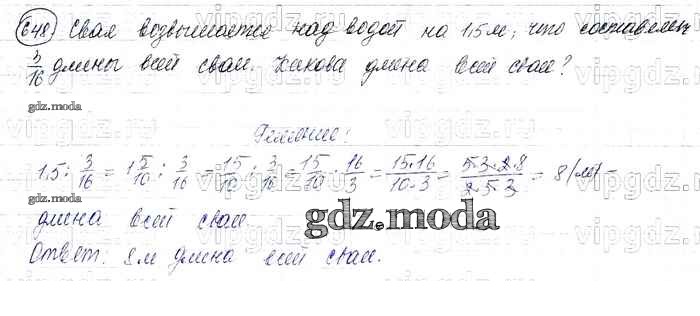 648) Свая возвышается над водой на 1,5 м, что составляет
3/16 длины всей сваи. Какова длина всей сваи?
gdz.moda
Решение:
1,5 : 3/16 = 1 5/10 : 3/16 = 15/10 : 3/16 = 15/10 · 16/3 = 15·16/10·3 = 5·3·2·8/2·5·3 = 8 (м) –
gdz.moda
длина всей сваи.
gdz.moda
Ответ: 8 м длина всей сваи.